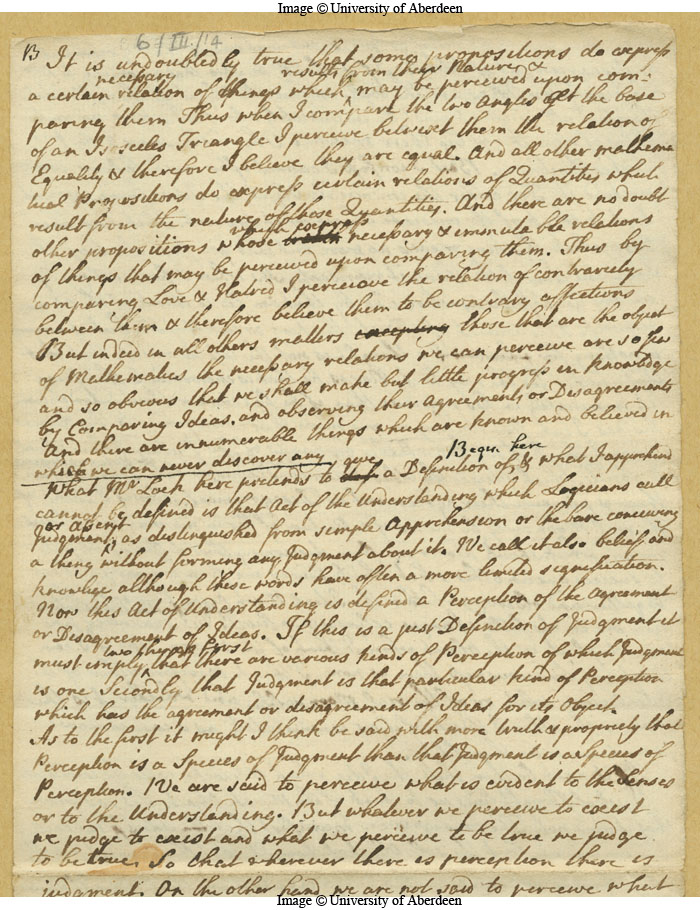 Image © University of Aberdeen
6/III/14
B It is undoubtedly true that some propositions do express
necessary result from their Nature, &
a certain relation of things which may be perceived upon com-
paring them Thus when I compare the two Angles at the base
of an Isosceles Triangle I perceive betwixt them the relation of
Equality & therefore I believe they are equal. And all other mathema
tical Propositions do express certain relations of Quantities which
result from the nature of those Quantities. And there are no doubt
which express
other propositions whose necessary & immutable relations
of things that may be perceived upon comparing them. Thus by
comparing Love & Hatred I perceive the relation of contrariety
between them & therefore believe them to be contrary affections
But indeed in all others matters excepting those that are the object
of Mathematics the necessary relations we can perceive are so few
and so obvious that we shall make but little progress in knowledge
by Comparing Ideas, and observing their Agreements or Disagreements
And there are innumerable things which are known and believed in
which we can never discover any
give Begin here
What Mr Lock here pretends to a Definition of, & what I apprehend
cannot be defined is that Act of the Understanding which Logicians call
or Assent
Judgment, as distinguished from simple Apprehension or the bare conceiving
a thing without forming any Judgment about it. We call it also belief and
knowlege although these words have often a more limited signification.
Now this Act of Understanding is defined a Perception of the agreement
or Disagreement of Ideas. If this is a just Definition of Judgment it
two things First
must imply that there are various kinds of Perception of which Judgment
is one Secondly that Judgment is that particular kind of Perception
which has the agreement or disagreement of Ideas for its Object.
As to the first it might I think be said with more truth & propriety that
Perception is a Species of Judgment than that Judgment is a Species of
Perception. We are said to perceive what is evident to the Senses
or to the Understanding. But whatever we perceive to exist
we judge to exist and what we perceive to be true we judge
to be true. So that wherever there is perception there is
judgment. On the other hand we are not said to perceive what
Image © University of Aberdeen